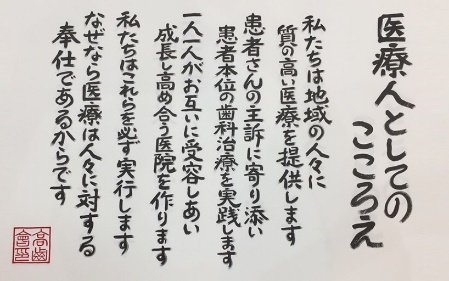 医療人としての
こころえ
私たちは地域の人々に
質の高い医療を提供します
患者さんの主訴に寄り添い
患者本位の歯科治療を実践します
一人一人がお互いに受容しあい
成長し高め合う医院を作ります
私たちはこれらを必ず実行します
なぜなら医療は人々に対する
奉仕であるからです